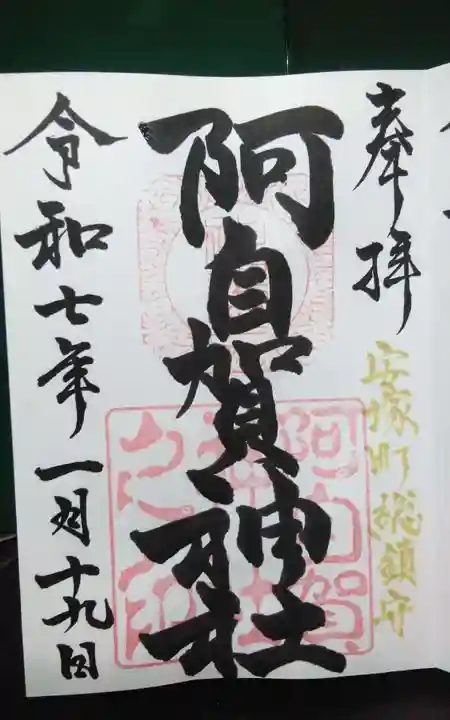 奉拝
安塚町総鎮守
阿自賀神社
阿自賀
神社
之印
令和七年一月十九日